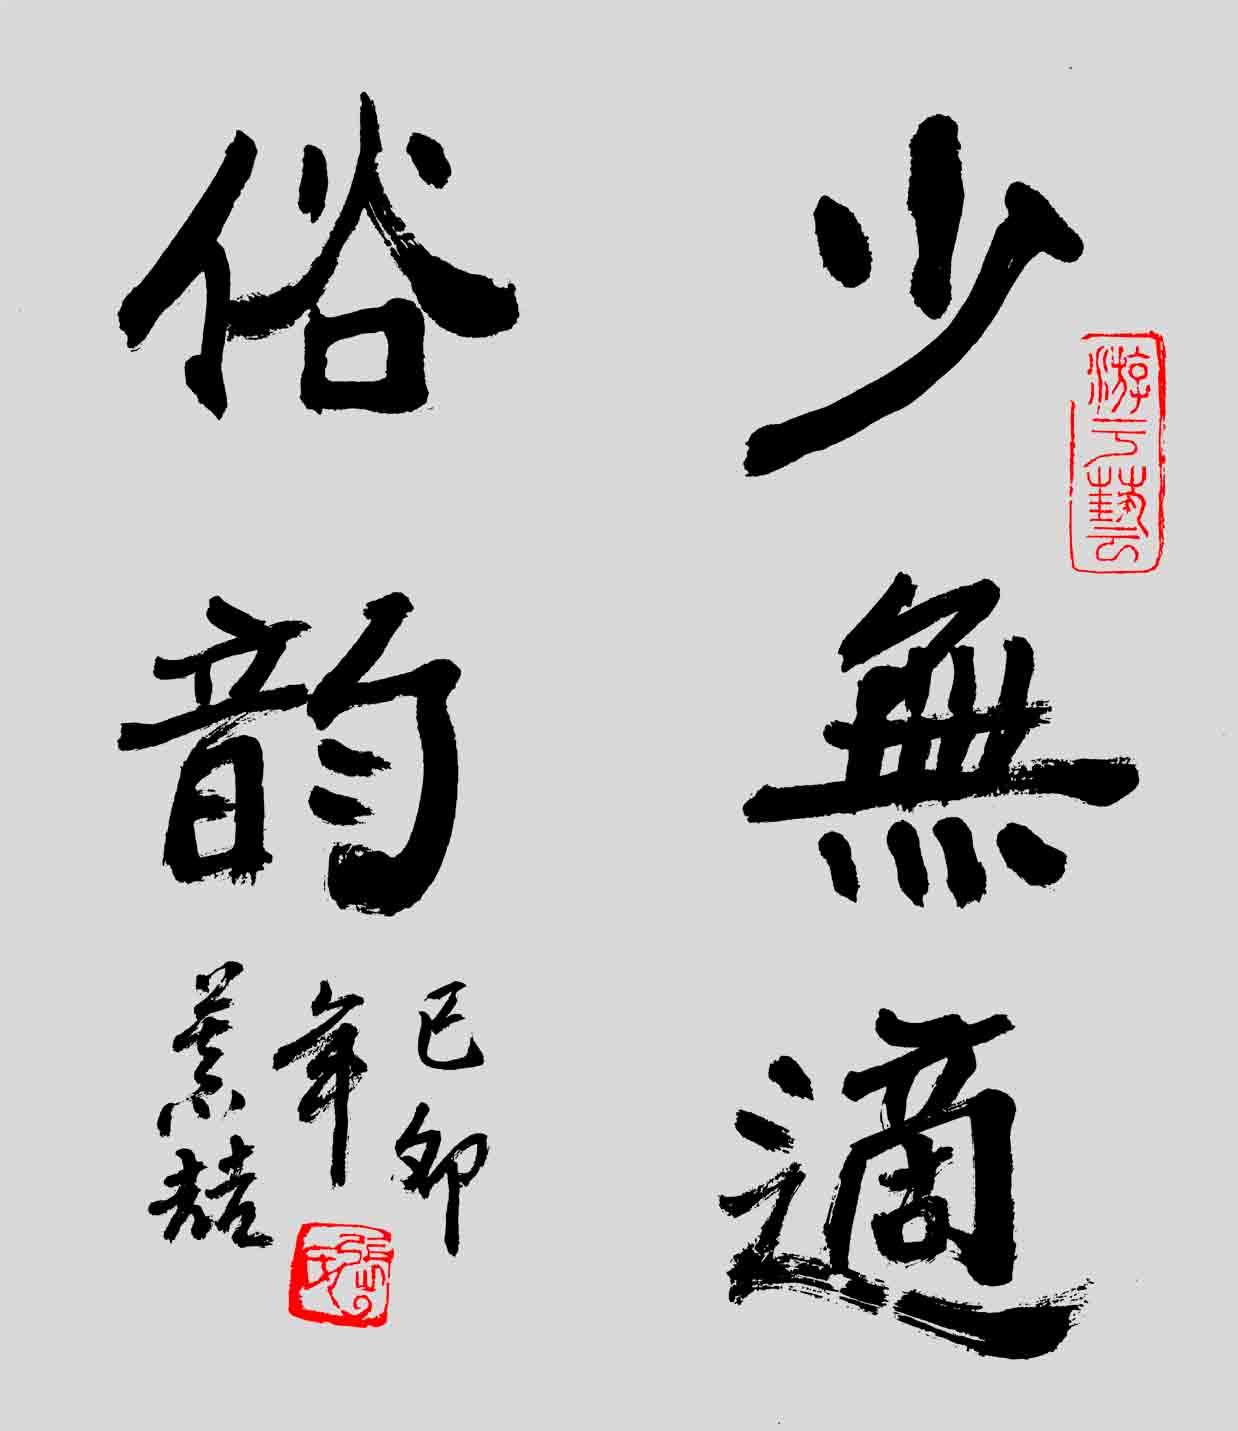 少無適
俗韵
己卯
年
游于藝